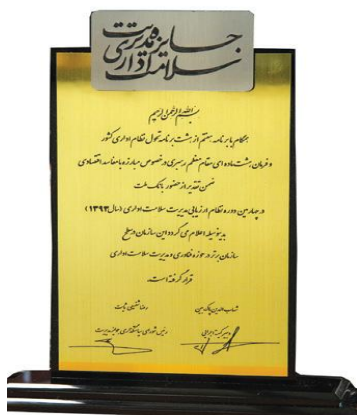 جایزه مدیریت
سلامت اداری
بسم الله الرحمن الرحیم
همگام با برنامه هفتم از هشت برنامه تحول نظام اداری کشور
و فرمان هشت ماده ای مقام معظم رهبری در خصوص مبارزه با مفاسد اقتصادی
ضمن تقدیر از حضور بانک ملت
در چهارمین دوره نظام ارزیابی مدیریت سلامت اداری (سال ۱۳۹۳)
بدینوسیله اعلام می گردد این سازمان در سطح
سازمان برتر در حوزه فناوری و مدیریت سلامت اداری
قرار گرفته است.
رضا
دبیر کمیته اجرایی
رئیس شورای سیاستگذاری جایزه مدیریت